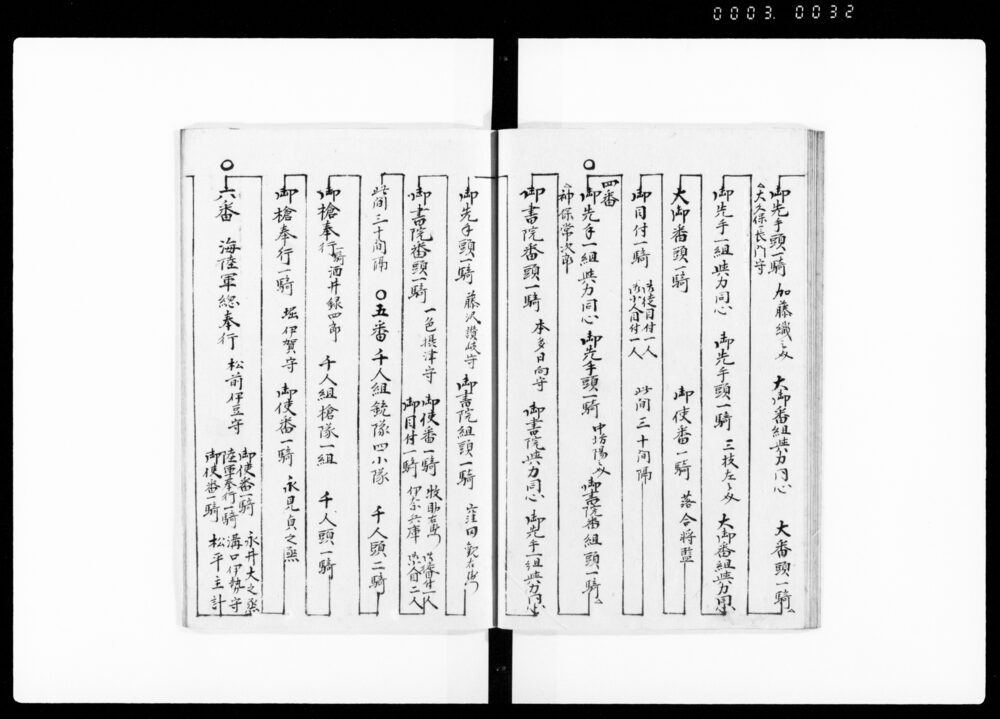 0003. 0032
御先手頭一騎 加藤織之助 大御番組与力同心 大番頭一騎
大久保長門守
御先手一組与力同心 御先手頭一騎 三枝左 大御番組与力同心
大御番頭一騎 御使番一騎 落合将監
御目付一騎 御徒目付一人 御小人目付一人 此間三十間隔
○四番
御先手一組与力同心 御先手頭一騎 中坊陽之助 御書院番組頭一騎
神保常次郎
御書院番頭一騎 本多日向守 御書院与力同心 御先手一組与力同心
御先手頭一騎 藤沢讃岐守 御書院組頭一騎 窪田
御書院番頭一騎 一色摂津守 御使番一騎 牧助右衛門
御目付一騎 伊奈兵庫
此間三十間隔 ○五番 千人組銃隊四小隊 千人頭二騎
御槍奉行一騎 酒井録四郎 千人組槍隊一組 千人頭一騎
御槍奉行一騎 堀伊賀守 御使番一騎 永見貞之丞
○六番 海陸軍総奉行 松前伊豆守
御使番一騎 永井大之丞
陸軍奉行一騎 溝口伊勢守
御使番一騎 松平主計